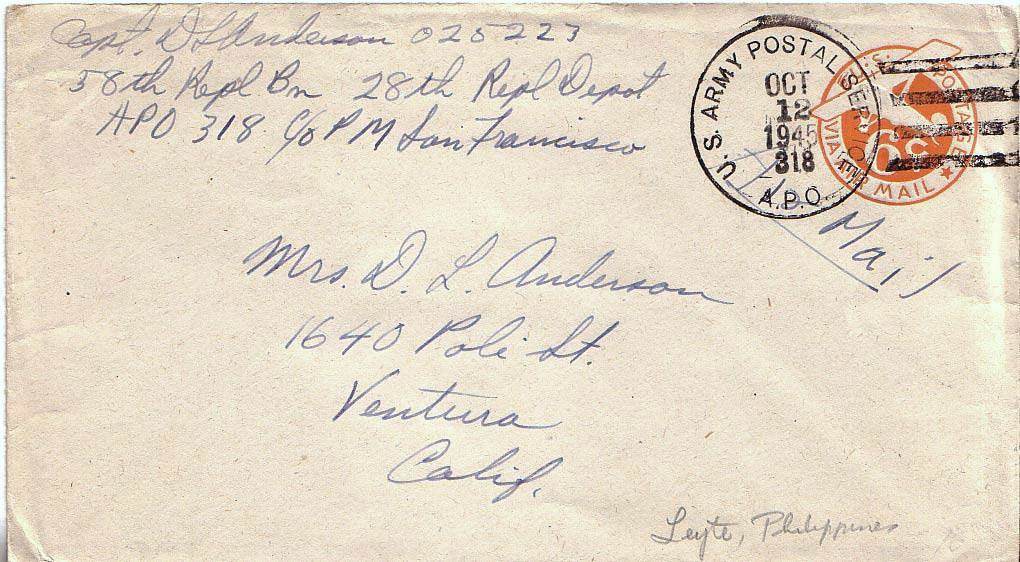 Capt. D L Anderson 025223
58th Repl Bn 28th Repl Depot
APO 318 C/o PM San Francisco
U.S. ARMY POSTAL SERVICE
OCT
12
1945
318
A.P.O.
U.S. POSTAGE
6c
VIA AIR MAIL
Air Mail
Mrs. D. L. Anderson
1640 Poli St.
Ventura
Calif.
Leyte, Philippines